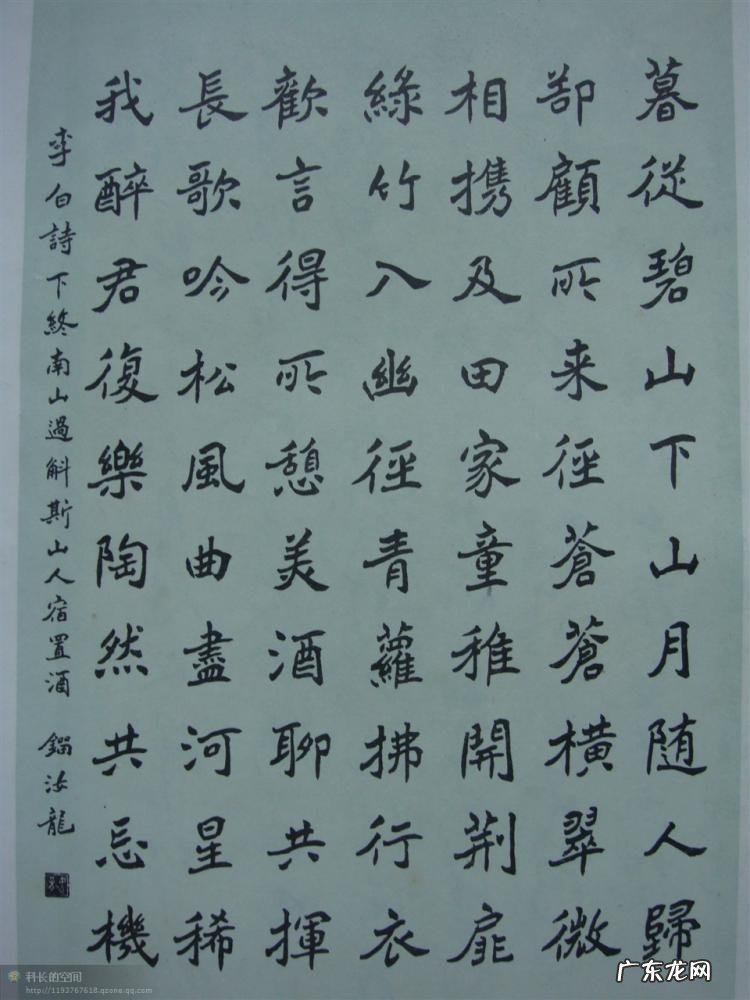 暮從碧山下山月随人歸
郤顧所来徑蒼蒼横翠微
相携及田家童稚開荆扉
綠竹入幽徑青蘿拂行衣
歡言得所憩美酒聊共揮
長歌吟松風曲盡河星稀
我醉君復樂陶然共忘機
李白詩下終南山過斛斯山人宿置酒 汝龍
科长的空间
http://1193767618.qzone.qq.com
广东龙网